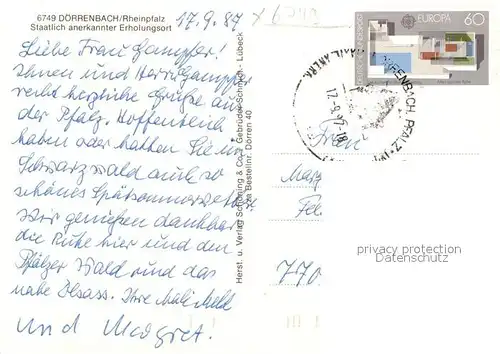 6749 DÖRRENBACH/Rheinpfalz
Staatlich anerkannter Erholungsort
17.9.87
Liebe Frau Gampfer!
Ihnen und Herrn Gampfer
recht herzliche Grüße aus
der Pfalz. Hoffentlich
haben oder hatten Sie im
Schwarzwald auch so
schönes Spätsommerwetter.
Wir genießen dankbar
die Ruhe hier und den
Pfälzer Wald und das
nahe Elsass. Ihre
und
Herst. u. Verlag Schöning & Co. + Gebrüder Schmidt - Lübeck
Bestellnr. Dörren 40
DEUTSCHE BUNDESPOST
EUROPA 60
17.-9.87-18
Frau
Marg
Fel
770
privacy protection
Datenschutz